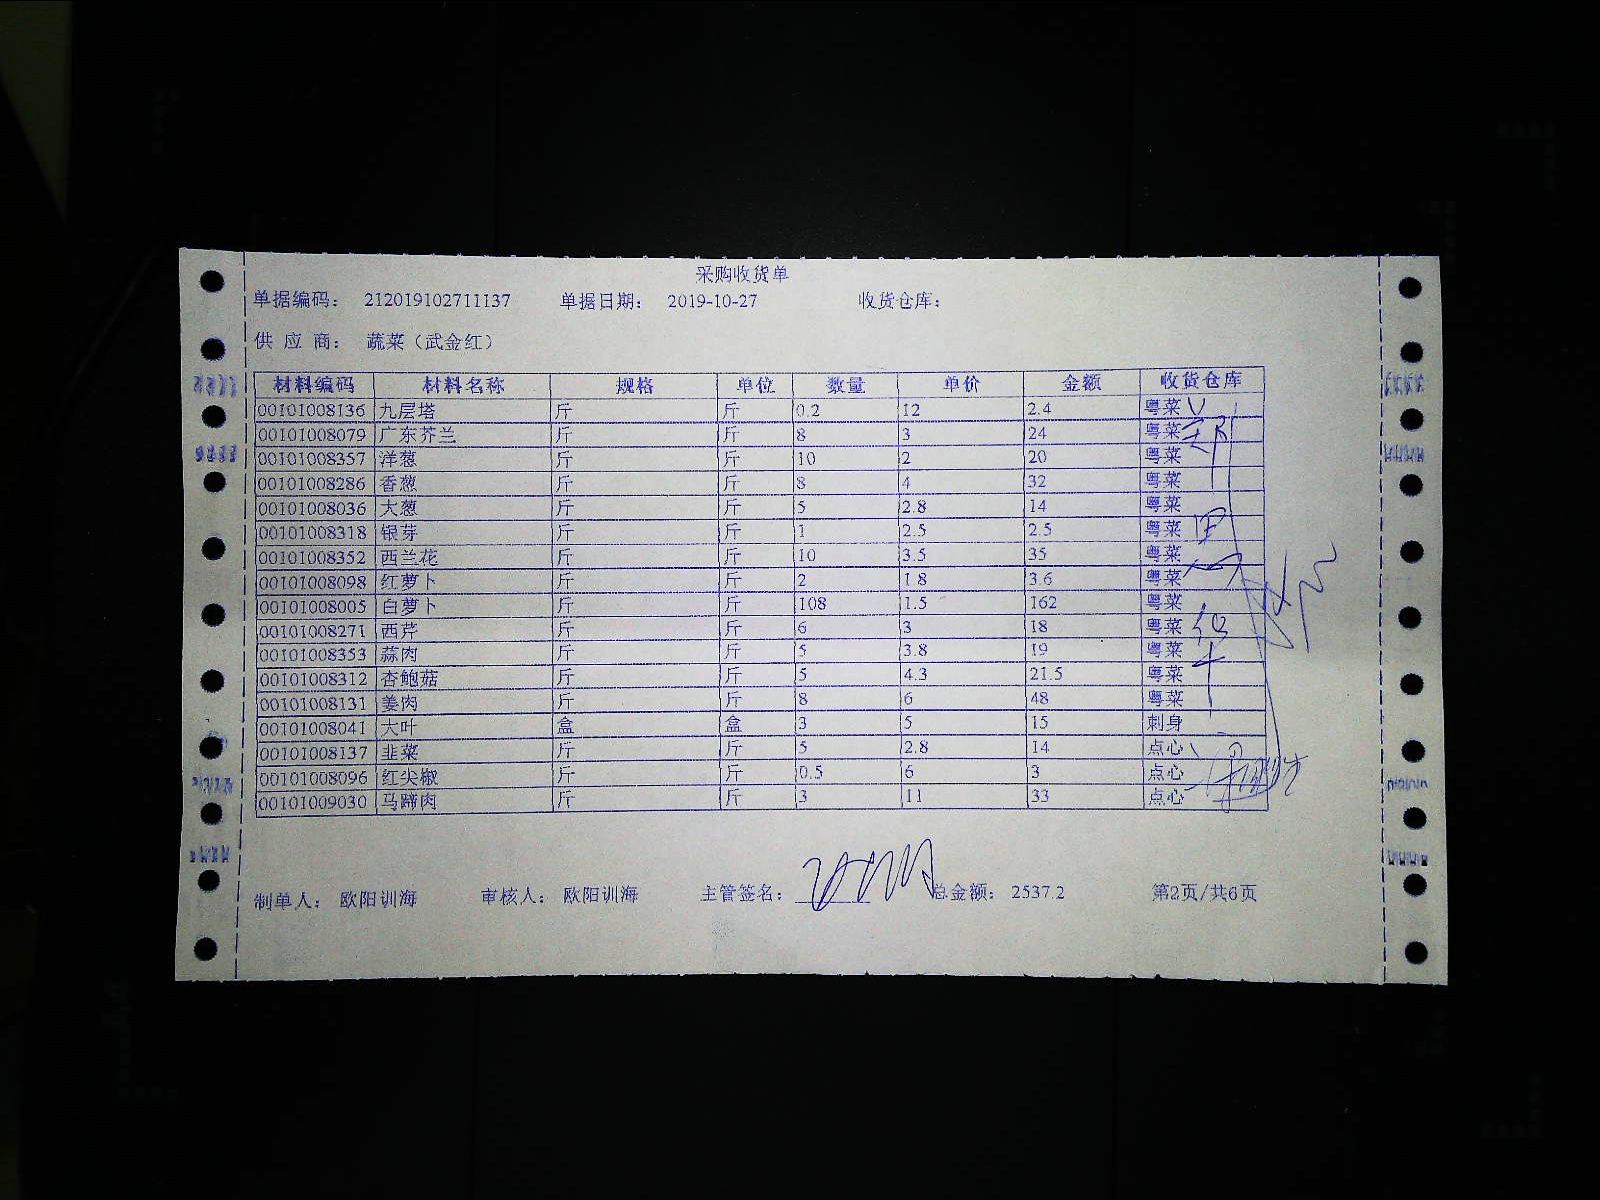 采购收货单
单据编码： 212019102711137 单据日期： 2019-10-27 收货仓库：
供 应 商： 蔬菜（武金红）
材料编码 材料名称 规格 单位 数量 单价 金额 收货仓库
00101008136 九层塔 斤 斤 0.2 12 2.4 粤菜
00101008079 广东芥兰 斤 斤 8 3 24 粤菜
00101008357 洋葱 斤 斤 10 2 20 粤菜
00101008286 香葱 斤 斤 8 4 32 粤菜
00101008036 大葱 斤 斤 5 2.8 14 粤菜
00101008318 银芽 斤 斤 1 2.5 2.5 粤菜
00101008352 西兰花 斤 斤 10 3.5 35 粤菜
00101008098 红萝卜 斤 斤 2 1.8 3.6 粤菜
00101008005 白萝卜 斤 斤 108 1.5 162 粤菜
00101008271 西芹 斤 斤 6 3 18 粤菜
00101008353 蒜肉 斤 斤 5 3.8 19 粤菜
00101008312 杏鲍菇 斤 斤 5 4.3 21.5 粤菜
00101008131 姜肉 斤 斤 8 6 48 粤菜
00101008041 大叶 盒 盒 3 5 15 刺身
00101008137 韭菜 斤 斤 5 2.8 14 点心
00101008096 红尖椒 斤 斤 0.5 6 3 点心
00101009030 马蹄肉 斤 斤 3 11 33 点心
制单人： 欧阳训海 审核人： 欧阳训海 主管签名： 总金额： 2537.2 第2页/共6页